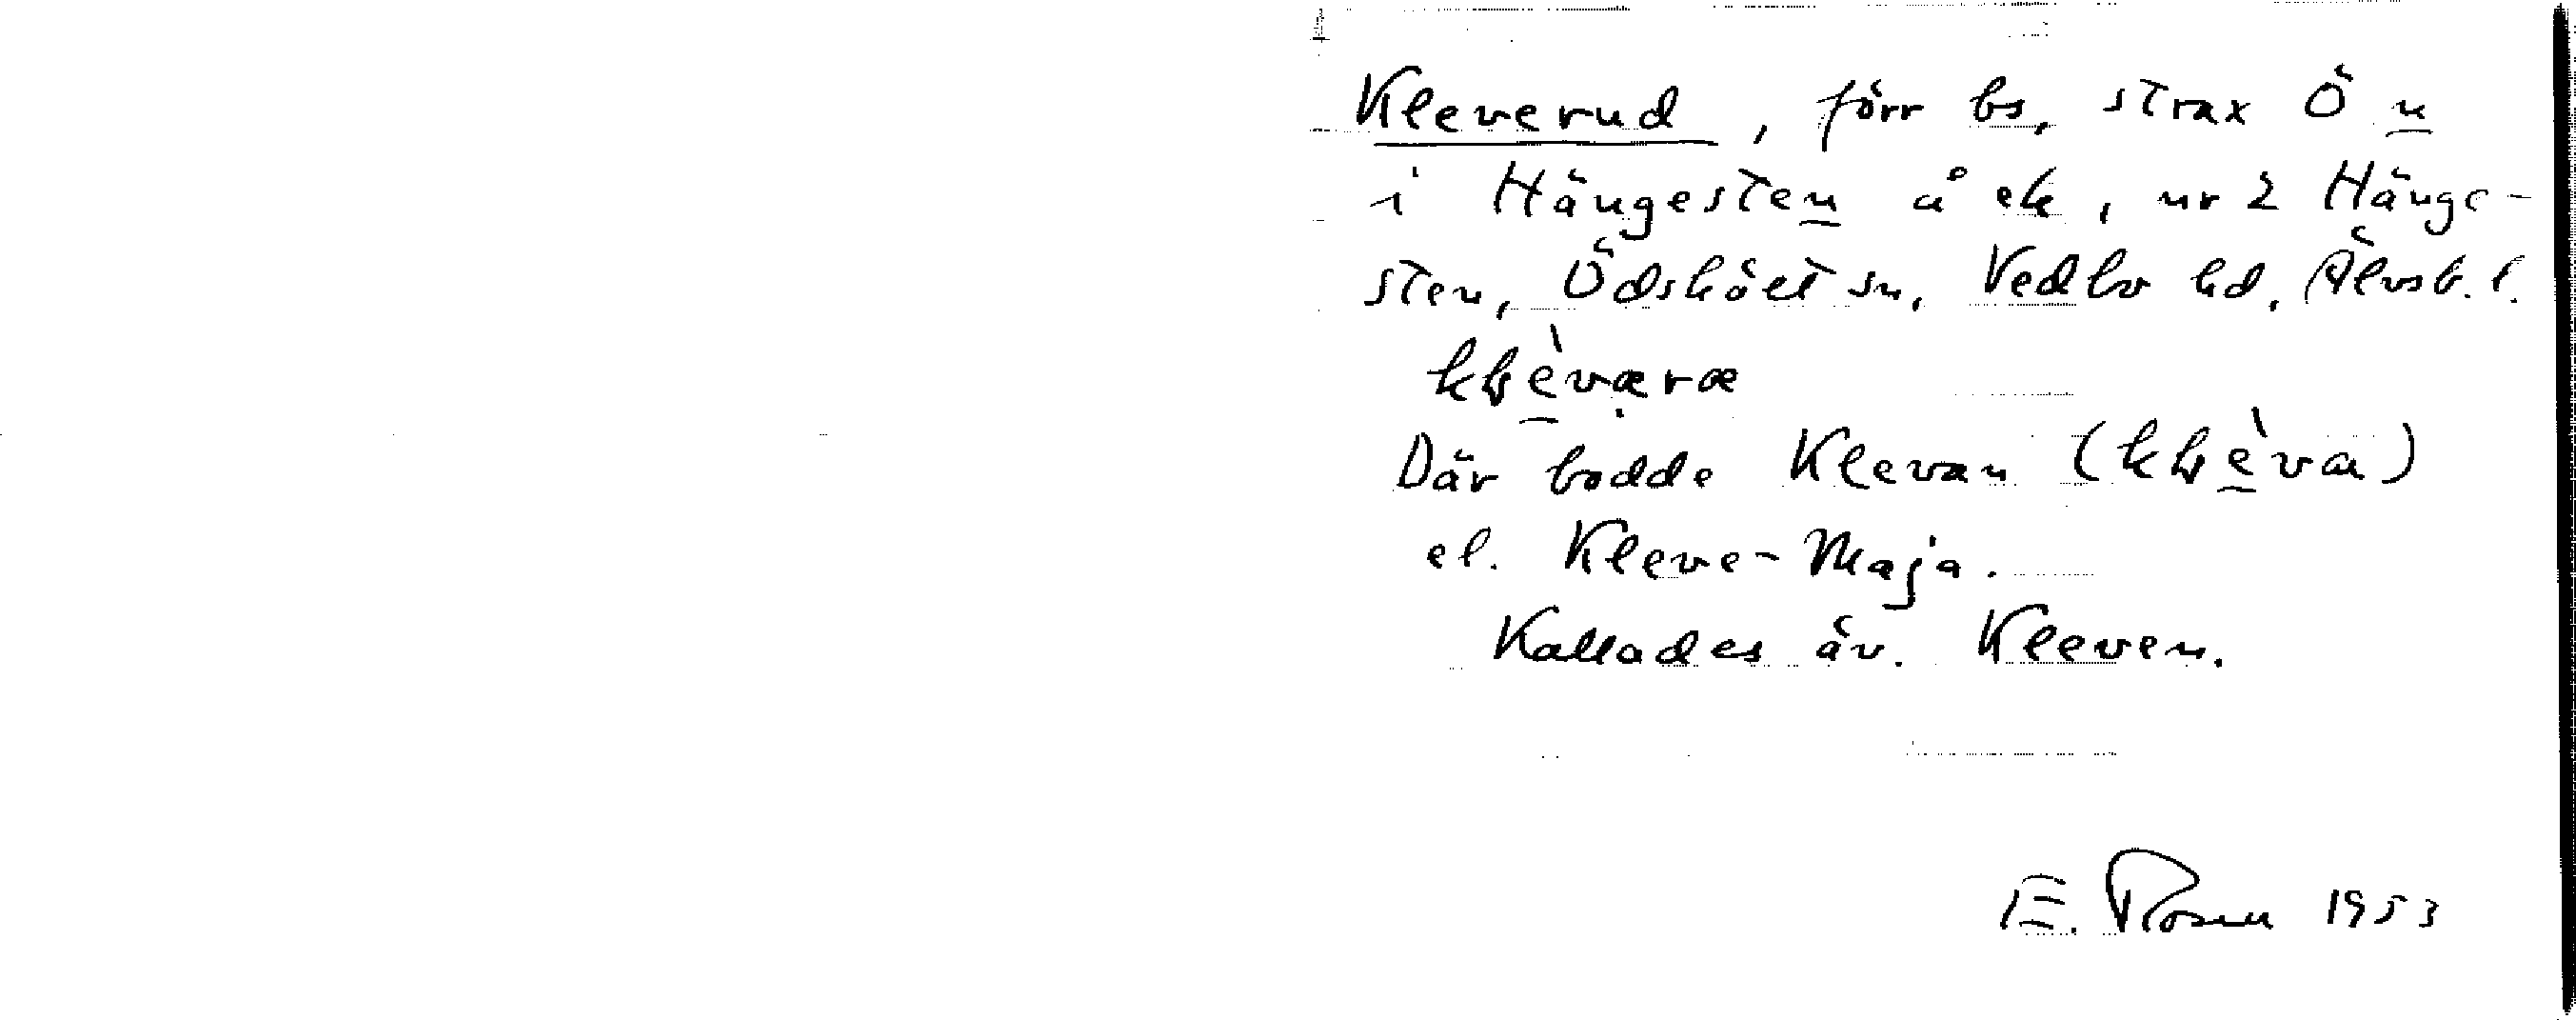 Kleverud, förr bs, strax Ö n
i Hängesten å ek, nr 2 Hänge-
sten, Ödskölt sn, Vedbo hd, Älvsb. l.
Där bodde Klevan
el. Kleve-Maja.
Kallades äv. Kleven.
E. Rosen 1953